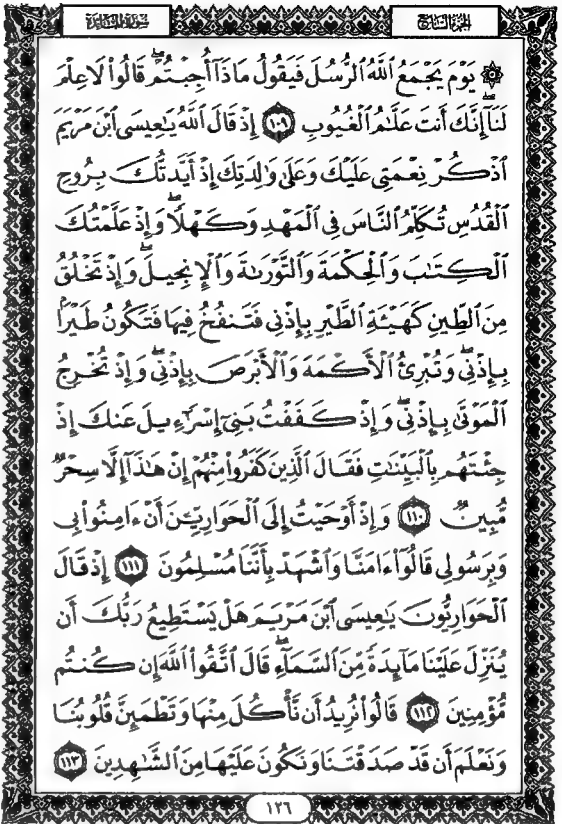 سورة المائدة
الجزء السابع
۞ يَوْمَ يَجْمَعُ ٱللَّهُ ٱلرُّسُلَ فَيَقُولُ مَاذَآ أُجِبْتُمْ ۖ قَالُوا۟ لَا عِلْمَ
لَنَآ ۖ إِنَّكَ أَنتَ عَلَّٰمُ ٱلْغُيُوبِ ١٠٩ إِذْ قَالَ ٱللَّهُ يَٰعِيسَى ٱبْنَ مَرْيَمَ
ٱذْكُرْ نِعْمَتِى عَلَيْكَ وَعَلَىٰ وَٰلِدَتِكَ إِذْ أَيَّدتُّكَ بِرُوحِ
ٱلْقُدُسِ تُكَلِّمُ ٱلنَّاسَ فِى ٱلْمَهْدِ وَكَهْلًا ۖ وَإِذْ عَلَّمْتُكَ
ٱلْكِتَٰبَ وَٱلْحِكْمَةَ وَٱلتَّوْرَىٰةَ وَٱلْإِنجِيلَ ۖ وَإِذْ تَخْلُقُ
مِنَ ٱلطِّينِ كَهَيْـَٔةِ ٱلطَّيْرِ بِإِذْنِى فَتَنفُخُ فِيهَا فَتَكُونُ طَيْرًۢا
بِإِذْنِى ۖ وَتُبْرِئُ ٱلْأَكْمَهَ وَٱلْأَبْرَصَ بِإِذْنِى ۖ وَإِذْ تُخْرِجُ
ٱلْمَوْتَىٰ بِإِذْنِى ۖ وَإِذْ كَفَفْتُ بَنِىٓ إِسْرَٰٓءِيلَ عَنكَ إِذْ
جِئْتَهُم بِٱلْبَيِّنَٰتِ فَقَالَ ٱلَّذِينَ كَفَرُوا۟ مِنْهُمْ إِنْ هَٰذَآ إِلَّا سِحْرٌ
مُّبِينٌ ١١٠ وَإِذْ أَوْحَيْتُ إِلَى ٱلْحَوَارِيِّـۧنَ أَنْ ءَامِنُوا۟ بِى
وَبِرَسُولِى قَالُوٓا۟ ءَامَنَّا وَٱشْهَدْ بِأَنَّنَا مُسْلِمُونَ ١١١ إِذْ قَالَ
ٱلْحَوَارِيُّونَ يَٰعِيسَى ٱبْنَ مَرْيَمَ هَلْ يَسْتَطِيعُ رَبُّكَ أَن
يُنَزِّلَ عَلَيْنَا مَآئِدَةً مِّنَ ٱلسَّمَآءِ ۖ قَالَ ٱتَّقُوا۟ ٱللَّهَ إِن كُنتُم
مُّؤْمِنِينَ ١١٢ قَالُوا۟ نُرِيدُ أَن نَّأْكُلَ مِنْهَا وَتَطْمَئِنَّ قُلُوبُنَا
وَنَعْلَمَ أَن قَدْ صَدَقْتَنَا وَنَكُونَ عَلَيْهَا مِنَ ٱلشَّٰهِدِينَ ١١٣
١٢٦